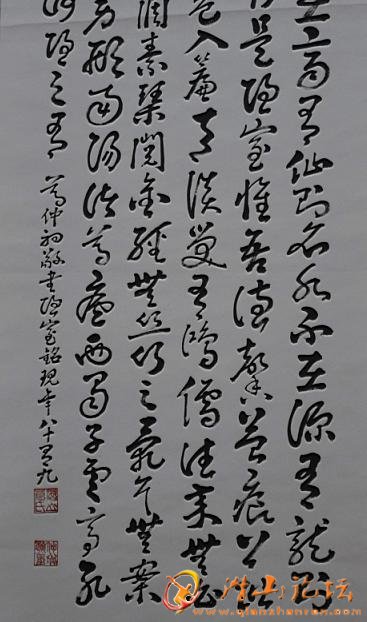 在高有仙則名水不在深有龍則
斯是陋室惟吾德馨苔痕上階
色入簾青談笑有鴻儒往來無白
調素琴閱金經無絲竹之亂耳無案
勞形南陽諸葛廬西蜀子雲亭孔
何陋之有
葛仲初敬書陋室銘現年八十有九
潜山论坛
www.qianshanren.com